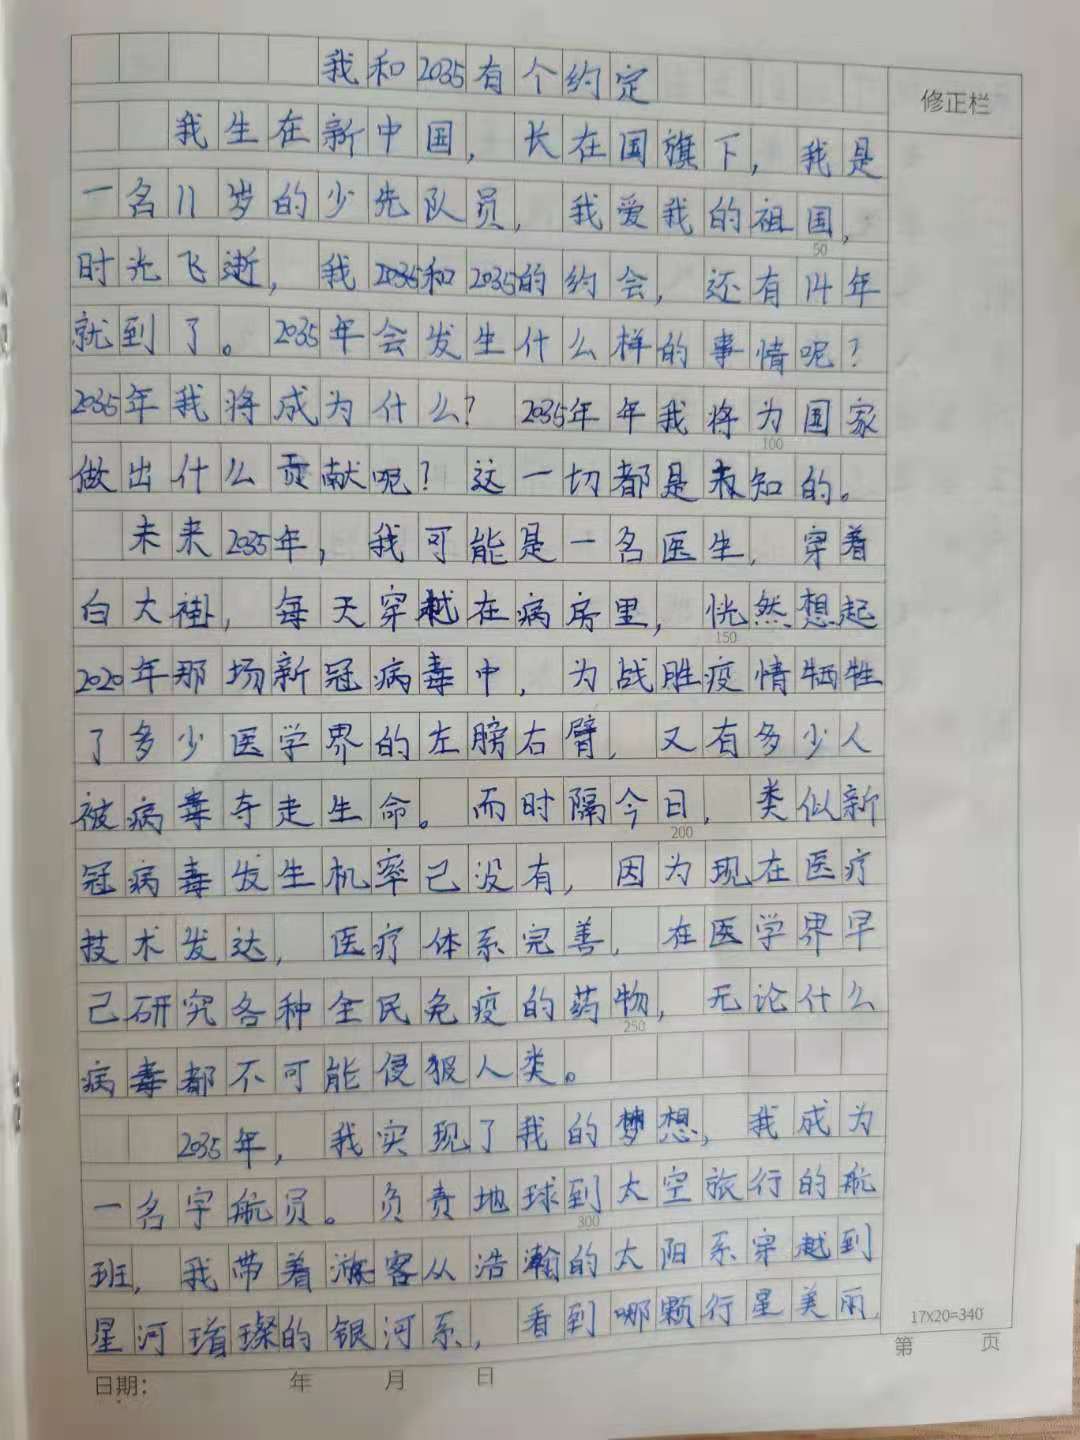 我和2035有个约定
修正栏
我生在新中国，长在国旗下，我是
一名11岁的少先队员，我爱我的祖国，
50
时光飞逝，我2035和2035的约会，还有14年
就到了。2035年会发生什么样的事情呢？
2035年我将成为什么？2035年年我将为国家
100
做出什么贡献呢？这一切都是未知的。
未来2035年，我可能是一名医生，穿着
白大褂，每天穿越在病房里，恍然想起
150
2020年那场新冠病毒中，为战胜疫情牺牲
了多少医学界的左膀右臂，又有多少人
被病毒夺走生命。而时隔今日，类似新
200
冠病毒发生机率己没有，因为现在医疗
技术发达，医疗体系完善，在医学界早
己研究各种全民免疫的药物，无论什么
250
病毒都不可能侵犯人类。
2035年，我实现了我的梦想，我成为
一名宇航员。负责地球到太空旅行的航
300
班，我带着游客从浩瀚的太阳系穿越到
星河璀璨的银河系，看到哪颗行星美丽，
17X20=340
日期： 年 月 日
第 页